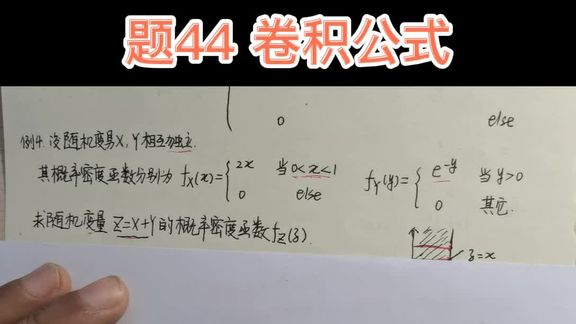 题44 卷积公式
0 else
例4. 设随机变量X,Y相互独立.
其概率密度函数分别为 f_X(x)={ 2x 当0<x<1 f_Y(y)={ e^{-y} 当y>0
0 else 0 其它.
求随机变量 Z=X+Y的概率密度函数f_Z(z).
z=x